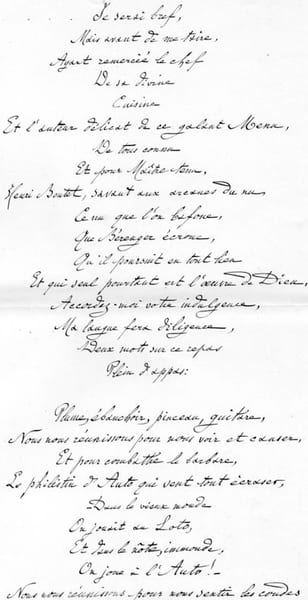 . . . . Je serai bref,
Mais avant de me taire,
Ayant remercié le chef
De sa divine
Cuisine
Et l'auteur délicat de ce galant Menu,
De tous connu
Et pour Maître tenu,
Henri Boutet, savant aux arcanes du nu
Ce nu que l'on bafoue,
Que Bérenger écroue,
Qu'il poursuit en tout lieu
Et qui seul pourtant est l'œuvre de Dieu,
Accordez-moi votre indulgence,
Ma langue fera diligence,
Deux mots sur ce repas
Plein d'appas:
Plume, ébauchoir, pinceau, guitare,
Nous nous réunissons pour nous voir et causer,
Et pour combattre le barbare,
Le philistin d'Auto qui veut tout écraser,
Dans le vieux monde
On jouait au Loto,
Et dans le nôtre, immonde,
On joue à l'Auto!
Nous nous réunissons pour nous sentir les coudes